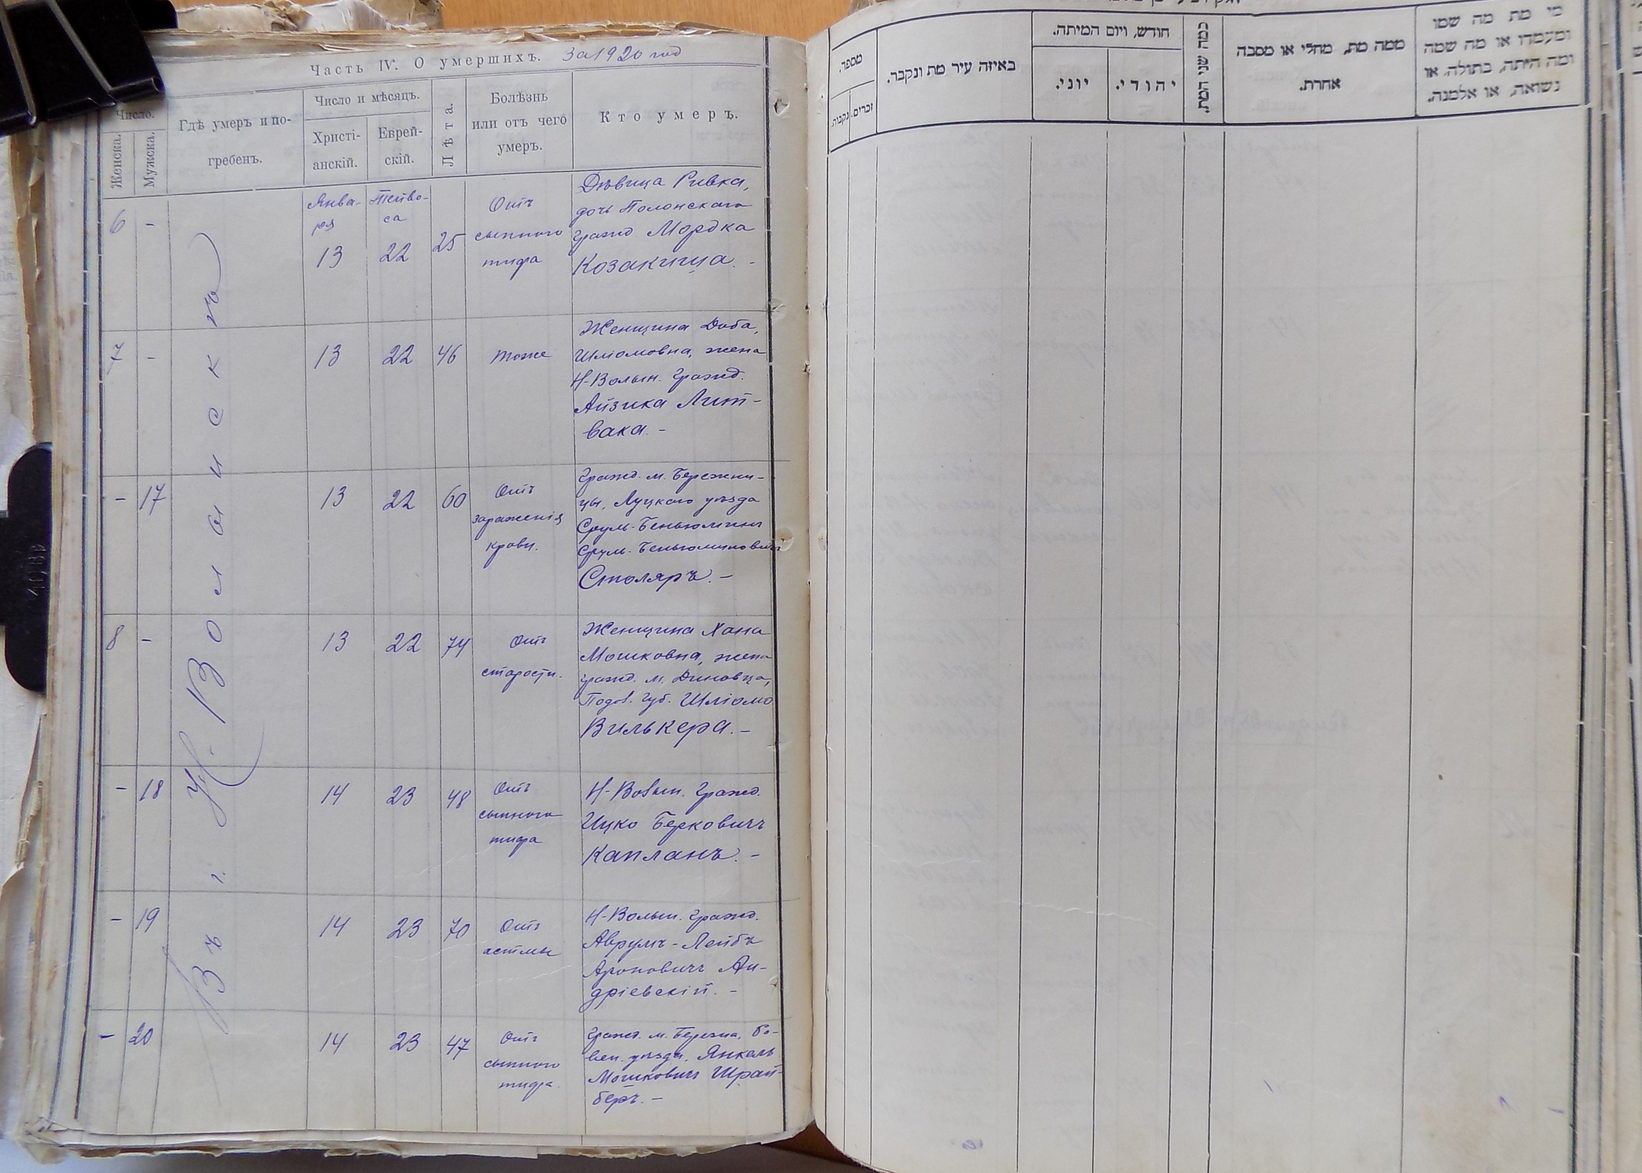 Часть IV. О умершихъ. За 1920 год
Число.
Женска.
Мужска.
Гдѣ умеръ и по-
гребенъ.
Число и мѣсяцъ.
Христі-
анскій.
Еврей-
скій.
Лѣта.
Болѣзнь
или отъ чего
умеръ.
Кто умеръ.
Въ г. Н-Волынскъ
6 -
Янва-
ря
13
Тейве-
са
22
25
Отъ
сыпного
тифа
Дѣвица Ривка,
дочь Полонскаго
гражд Мордка
Козакища. -
7 -
13
22
46
тоже
Женщина Доба,
Шліомовна, жена
Н-Волын. гражд.
Айзика Лит-
вака. -
- 17
13
22
60
Отъ
зараженія
крови.
Гражд. м. Бережни-
цы, Луцкаго уѣзда
Сруль-Беньюминъ
Сруль-Беньюминовичъ
Столяръ. -
8 -
13
22
74
Отъ
старости.
Женщина Хана
Мошковна, жена
гражд. м.
Подол. губ. Шліомо
Вилькера. -
- 18
14
23
48
Отъ
сыпного
тифа
Н-Волын. гражд.
Ицко Берковичъ
Капланъ. -
- 19
14
23
70
Отъ
астмы
Н-Волын. гражд.
Аврумъ-Лейбъ
Ароновичъ Ан-
дріевскій. -
- 20
14
23
47
Отъ
сыпного
тифа.
Гражд. м. Березна, Ро-
вен. уѣзда, Янкель
Мошковичъ Шрай-
беръ. -
מספר.
נקבות.
זכרים.
באיזה עיר מת ונקבר.
חודש, ויום המיתה.
יוני.
יהודי.
כמה שני המת.
ממה מת, מחלי או מסבה
אחרת.
מי מת מה שמו
ומעמדו או מה שמה
ומה היתה, בתולה, או
נשואה, או אלמנה.